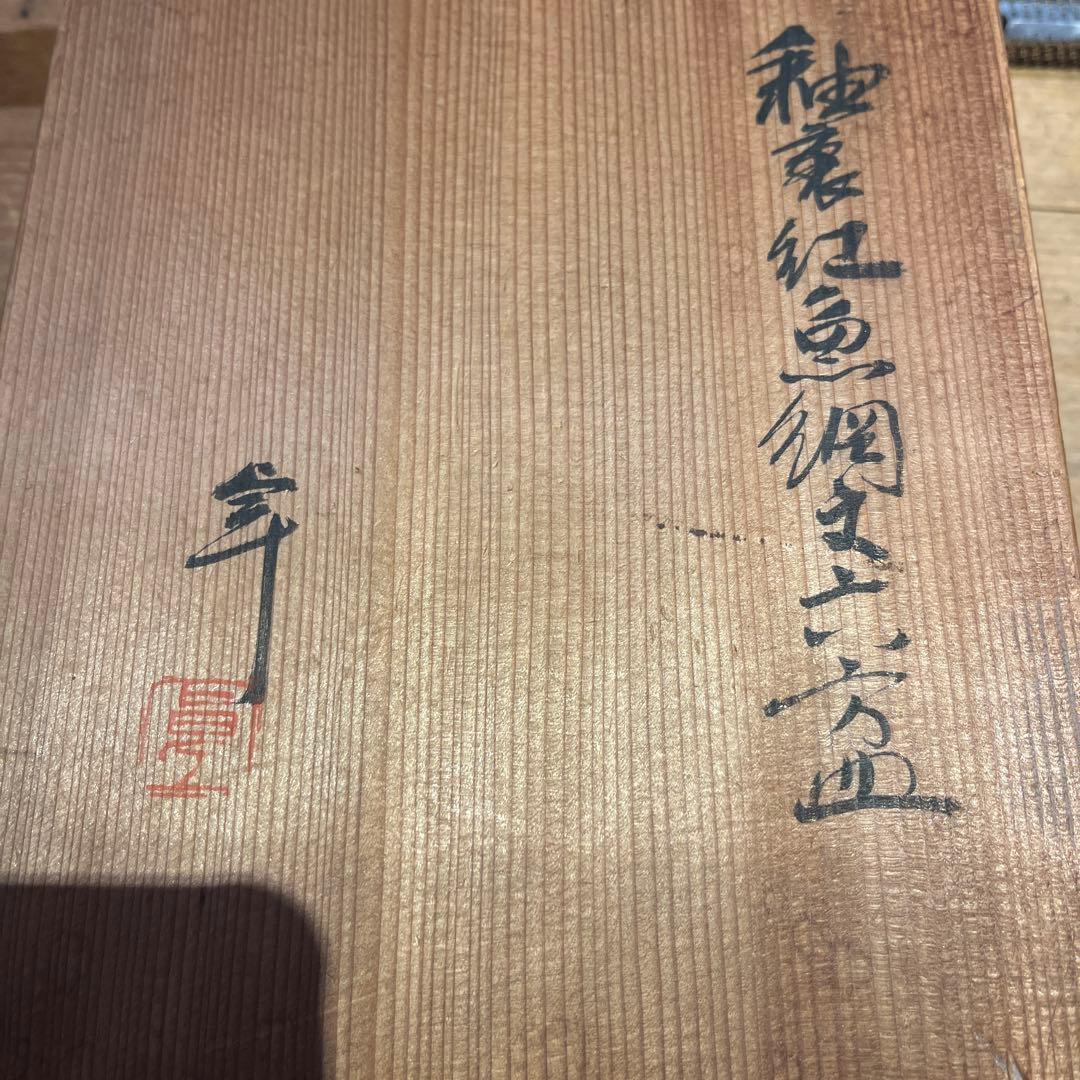 釉裏紅魚網文六方皿